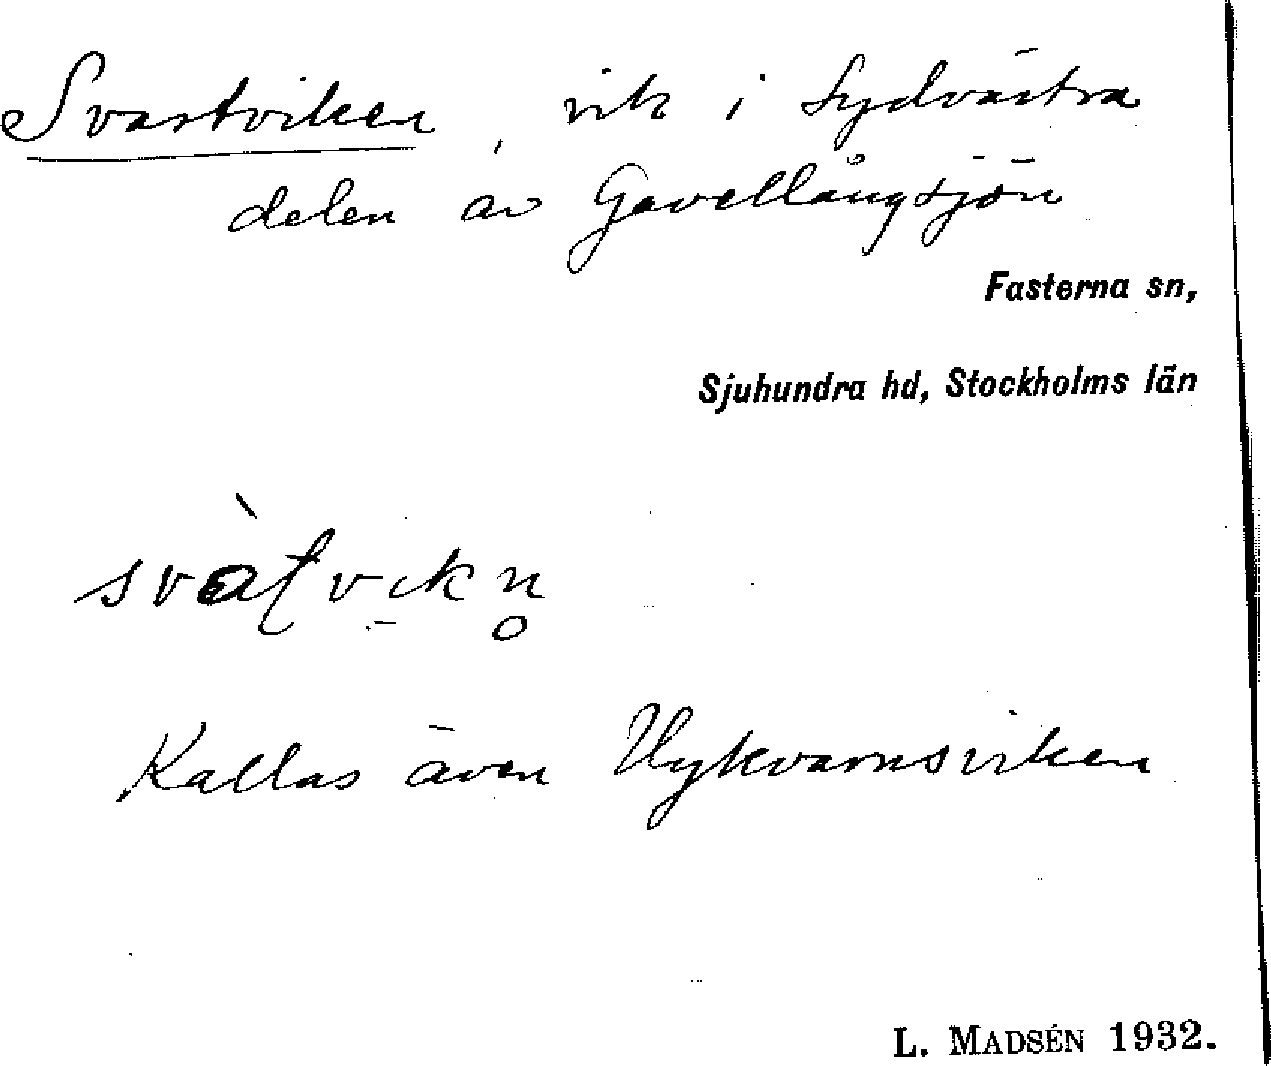 Svartviken, vik i sydvästra
delen av Gavellångsjön
Fasterna sn,
Sjuhundra hd, Stockholms län
svàʈvi̠kn̥
Kallas även Nykvarnsviken
L. MADSÉN 1932.